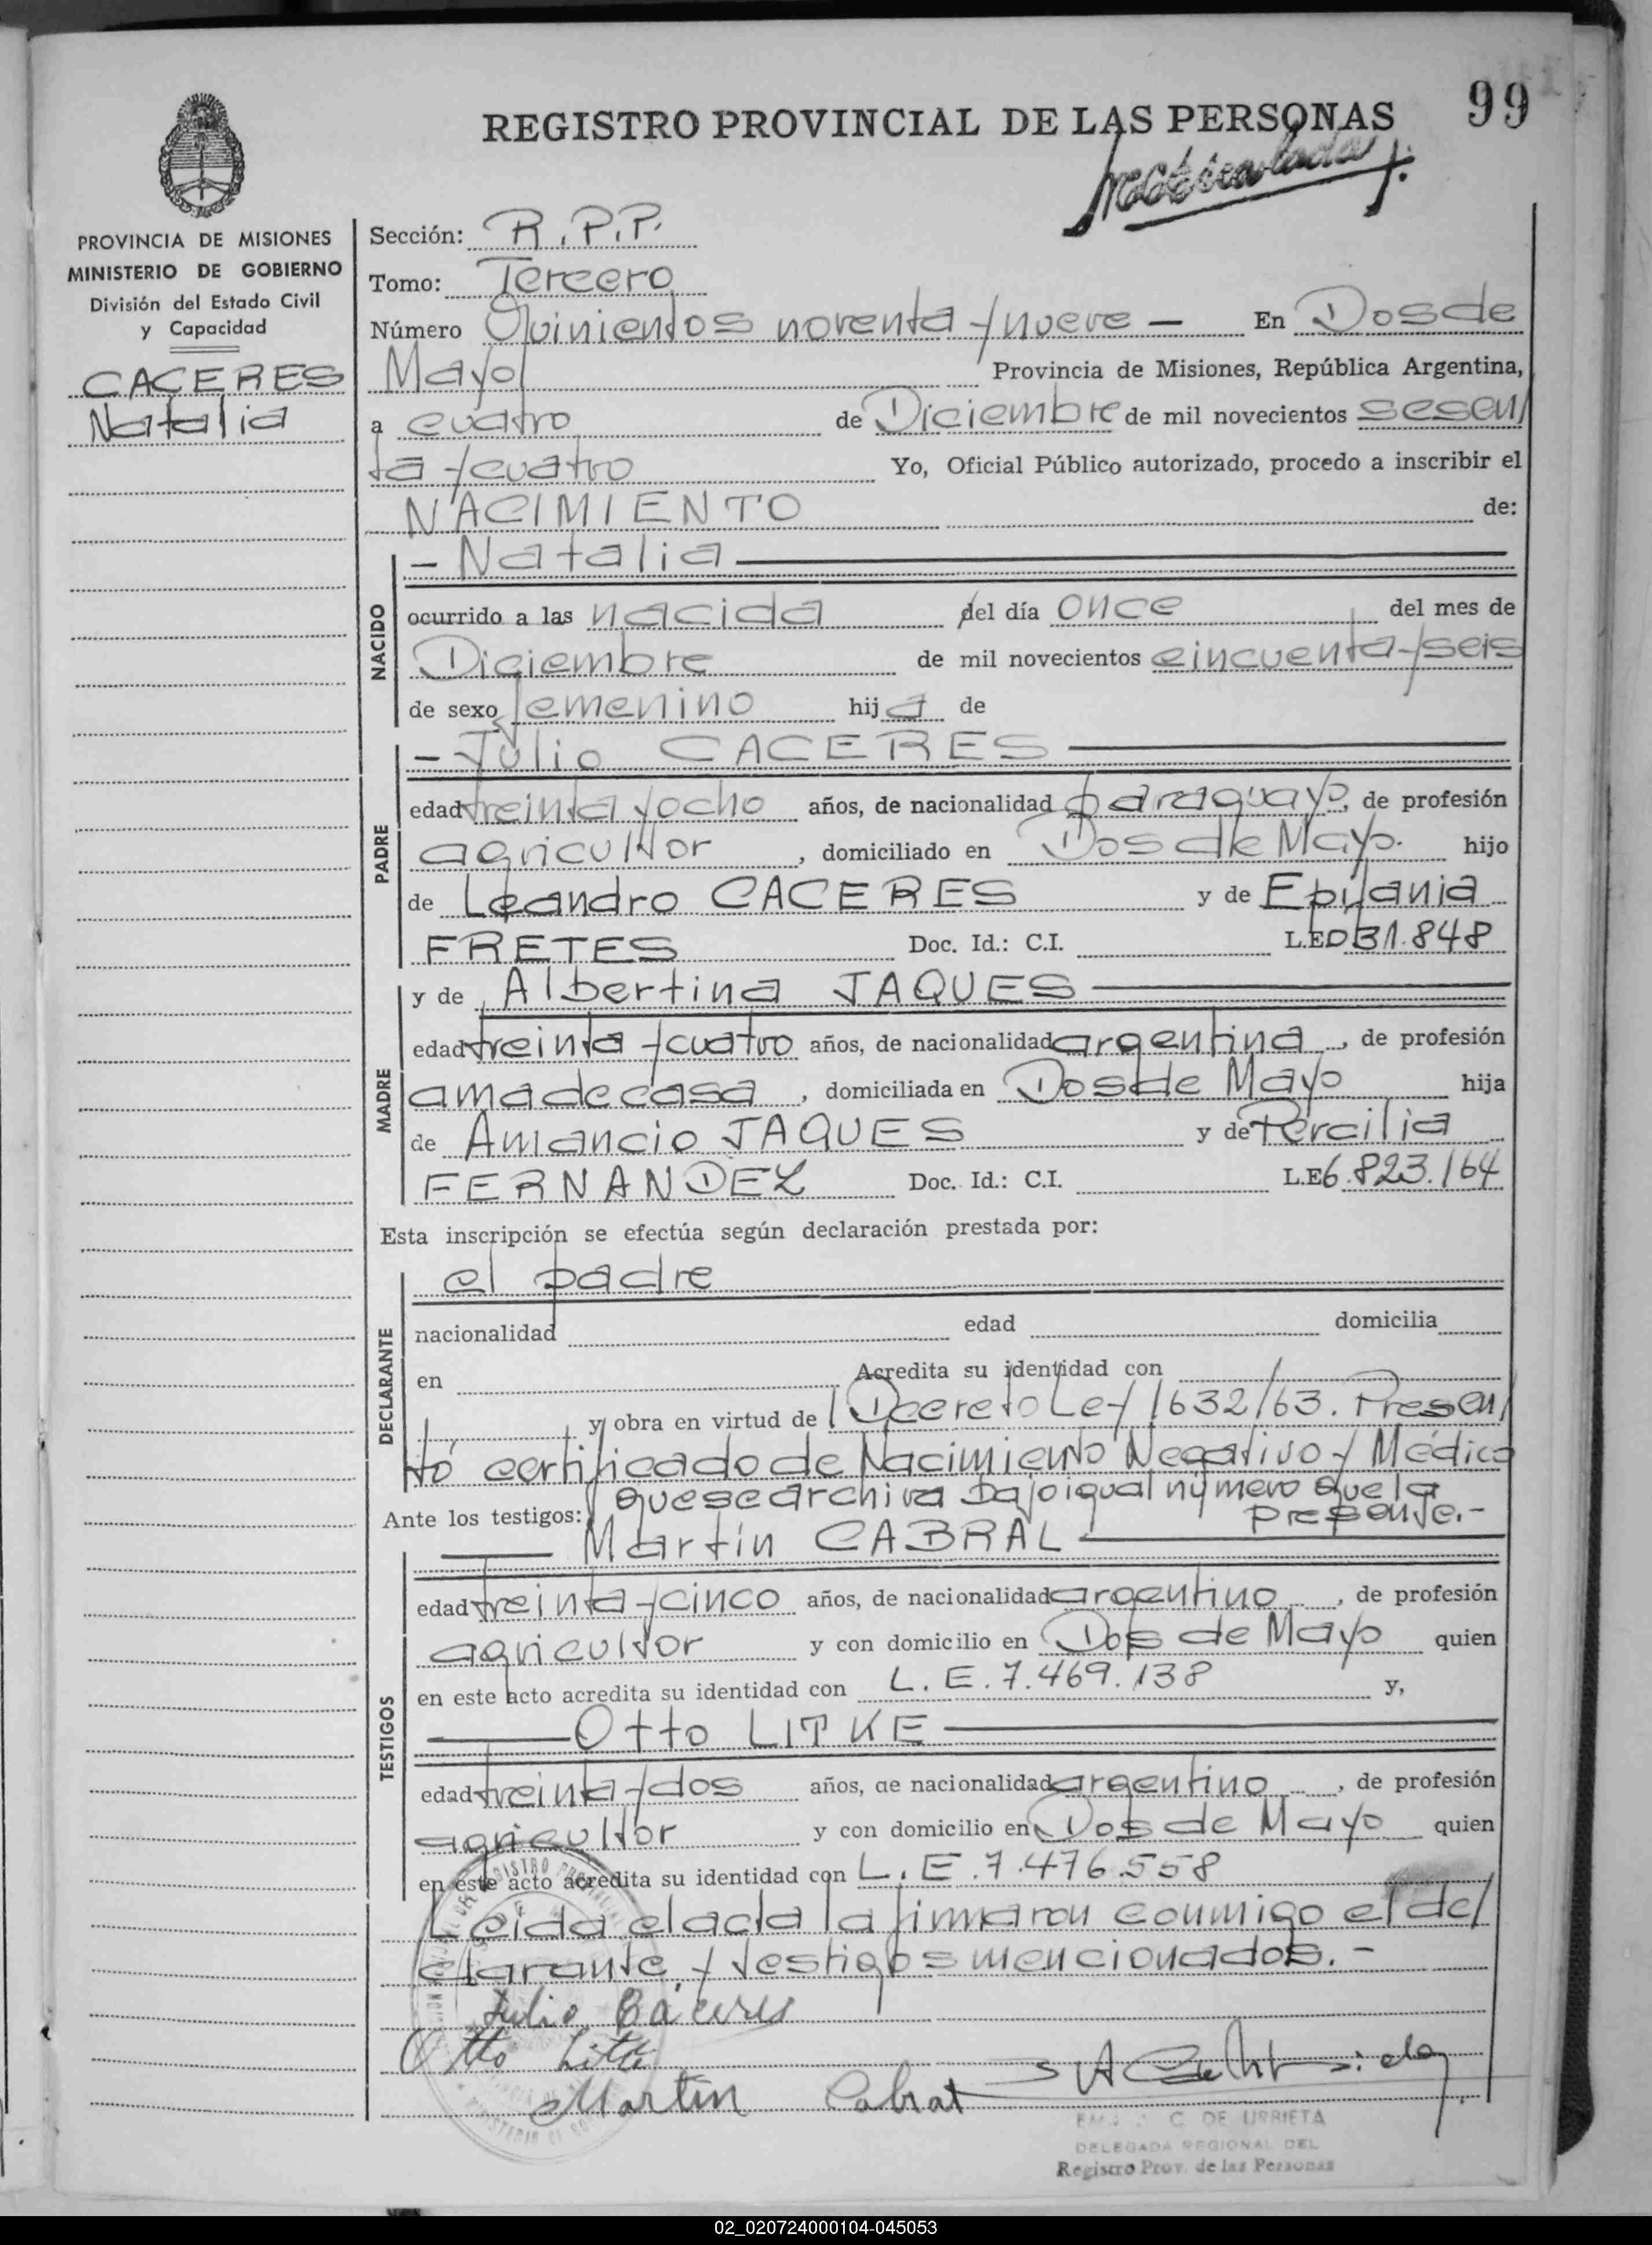 REGISTRO PROVINCIAL DE LAS PERSONAS 99
Matriculada
PROVINCIA DE MISIONES
MINISTERIO DE GOBIERNO
División del Estado Civil
y Capacidad
CACERES
Natalia
Sección: R.P.P.
Tomo: Tercero
Número Quinientos noventa y nueve — En Dos de
Mayo Provincia de Misiones, República Argentina,
a cuatro de Diciembre de mil novecientos sesen/
ta y cuatro Yo, Oficial Público autorizado, procedo a inscribir el
NACIMIENTO de:
NACIDO
- Natalia
ocurrido a las nacida del día once del mes de
Diciembre de mil novecientos cincuenta y seis
de sexo femenino hija de
PADRE
- Julio CACERES
edad treinta y ocho años, de nacionalidad paraguayo, de profesión
agricultor, domiciliado en Dos de Mayo. hijo
de Leandro CACERES y de Epifania
FRETES Doc. Id.: C.I. L.E. 031.848
MADRE
y de Albertina JAQUES
edad treinta y cuatro años, de nacionalidad argentina, de profesión
ama de casa, domiciliada en Dos de Mayo hija
de Amancio JAQUES y de Percilia
FERNANDEZ Doc. Id.: C.I. L.E 6.823.164
Esta inscripción se efectúa según declaración prestada por:
DECLARANTE
el padre
nacionalidad edad domicilia
en Acredita su identidad con
y obra en virtud de Decreto Ley 1632/63. Presen/
tó certificado de Nacimiento Negativo y Médico
que se archiva bajo igual número que la
presente.-
Ante los testigos:
TESTIGOS
Martin CABRAL
edad treinta y cinco años, de nacionalidad argentino, de profesión
agricultor y con domicilio en Dos de Mayo quien
en este acto acredita su identidad con L.E.7.469.138 y,
Otto LITKE
edad treinta y dos años, de nacionalidad argentino, de profesión
agricultor y con domicilio en Dos de Mayo quien
en este acto acredita su identidad con L.E.7.476.558
Leida el acta la firmaron conmigo el de/
clarante y testigos mencionados.-
Julio Caceres
Otto Litke
Martin Cabral
C DE URBIETA
DELEGADA REGIONAL DEL
Registro Prov. de las Personas
02_020724000104-045053